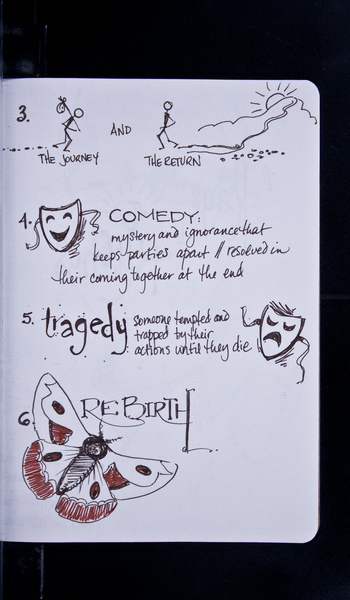 3.
THE JOURNEY AND THE RETURN
4. COMEDY:
mystery and ignorance that
keeps parties apart // resolved in
their coming together at the end
5. tragedy someone tempted and
trapped by their
actions until they die
6. REBIRTH